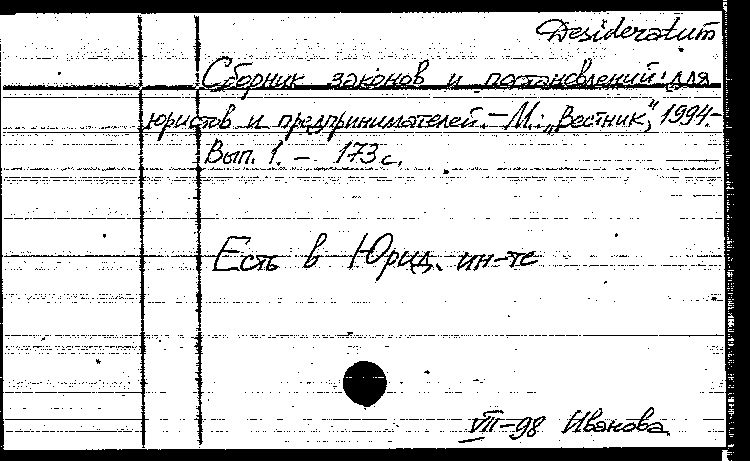 Desideratum
Сборник законов и постановлений: для
юристов и предпринимателей. - М.: „Вестник”, 1994. -
Вып. 1. - 173 с.
Есть в Юрид. ин-те
VII-98 Иванова